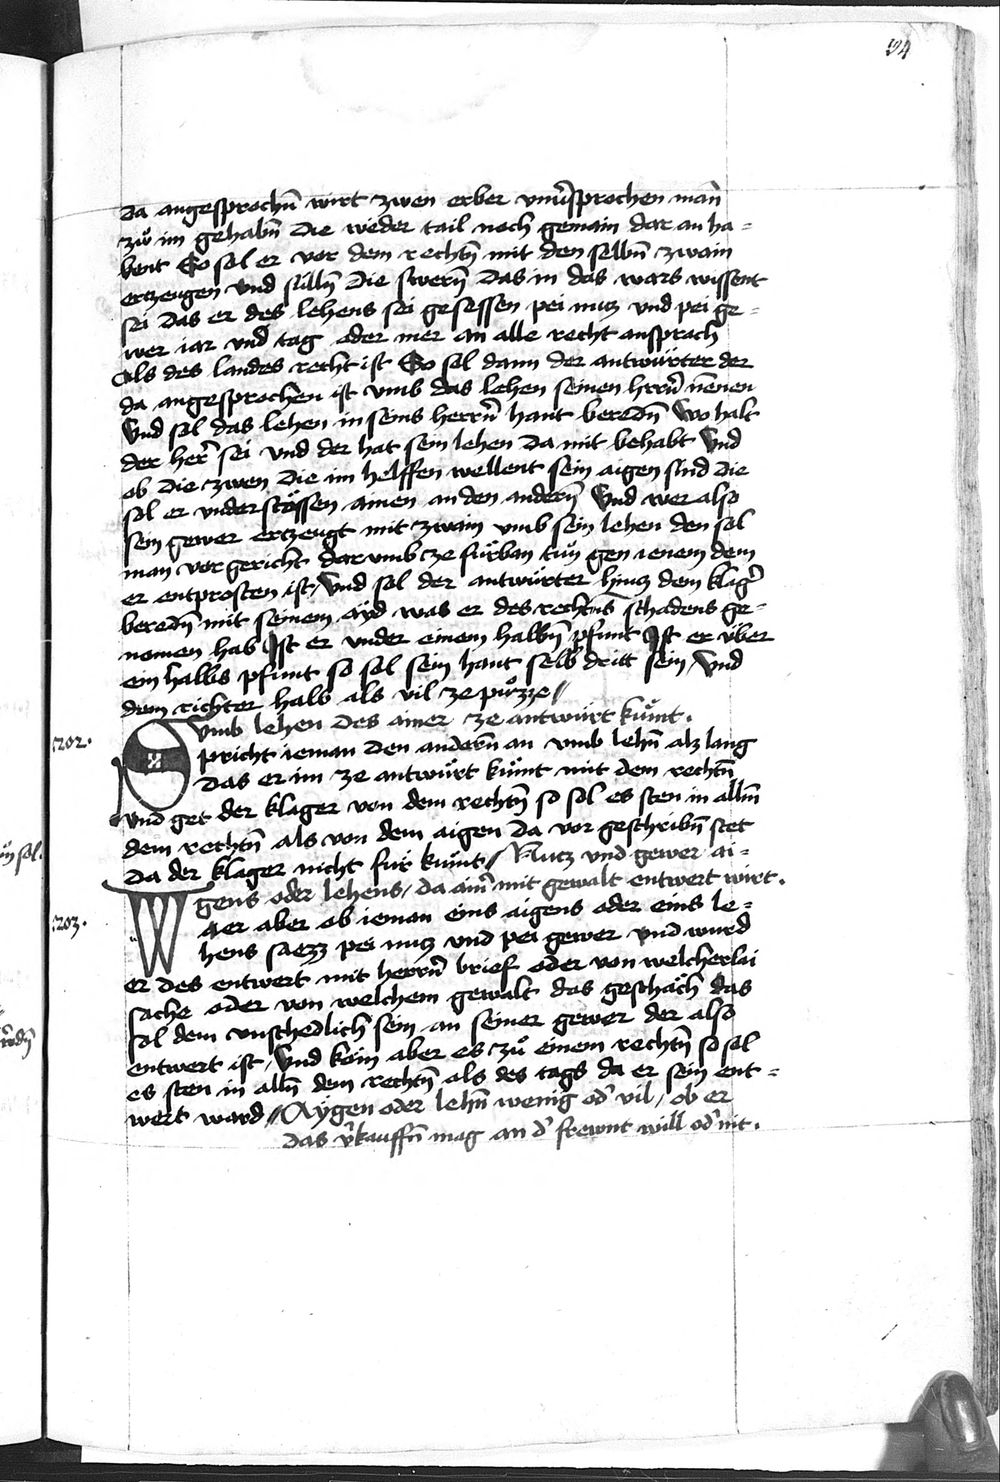 34
da angesprochñ wirt zwen erber vnuersprochen man
zů im gehabñ die weder tail noch gemain dar an ha=
bent So sol er vor dem rechtñ mit den selbñ zwain
ertzeugen vnd sullñ die swerñ das in das wars wissent
sei das er des lehens sei gesessen pei nutz vnd pei ge=
wer iar vnd tag oder mer an alle recht ansprach
als des landes recht ist So sol dann der antwürter der
da angesprochen ist vmb das lehen seinen hrrñ nennen
Vnd sol das lehen in seins herrñ hant beredñ wo halt
der her̃ sei vnd der hat sein lehen da mit behabt Vnd
ob die zwen die im helffen wellent sein aigen sind die
sol er vnderstössen ainen an den anderñ Vnd wer also
sein gewer ertzeugt mit zwain vmb sein lehen den sol
man vor gericht dar vmb ze fürban tuñ gen ienem dem
er entprosten ist / Vnd sol der antwürter hintz dem klager
beredñ mit seinem ayd was er des rechtens schadens ge=
nomen hab Ist er vnder einem halbñ pfunt Ist er über
ein halbs pfunt so sol sein hant selb dritt sein / Vnd
dem richter halb als vil ze půzze //
Vmb lehen des ainer ze antwürt kůmt .
202 .
Spricht ieman den anderñ an vmb lehñ alz lang
das er im ze antwürt kůmt mit dem rechtñ
vnd get der klager von dem rechtñ so sol es sten in allm̃
dem rechtñ als von dem aigen da vor geschribñ stet
da der klager nicht für kůmt // Nutz vnd gewer ai=
gens oder lehens / da aim̃ mit gewalt entwert wirt .
203 .
Wer aber ob ieman eins aigens oder eins le=
hens saezz pei nutz vnd pei gewer vnd wurd
er des entwert mit herrñ brief oder von welcherlai
sache oder von welchem gewalt das geschäch das
sol dem vnschedlich sein an seiner gewer der also
entwert ist / Vnd kom aber es zů einem rechtñ so sol
es sten in allm̃ dem rechtñ als des tags da er sein ent=
wert ward // Aygen oder lehñ wenig od' vil / ob er
das v'kauffñ mag an d' frewnt will od' nit .